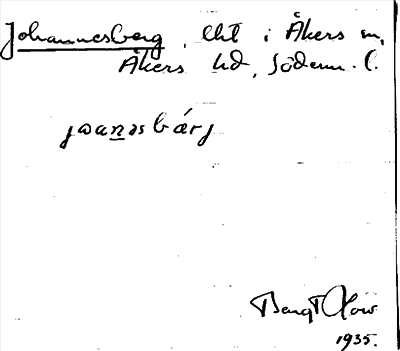 Johannesberg, lht i Åkers sn,
Åkers hd, Söderm. l.
joanəsbárj
Bengt
1935.